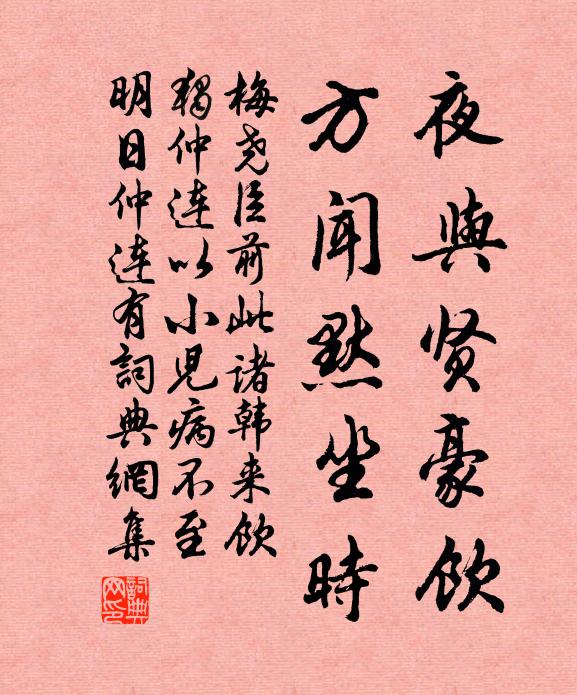 夜與贤豪飲
方闻默坐時
梅尧臣前此诸韩来饮
獨仲连以小児病不至
明日仲连有詞典網集
詞典
网印